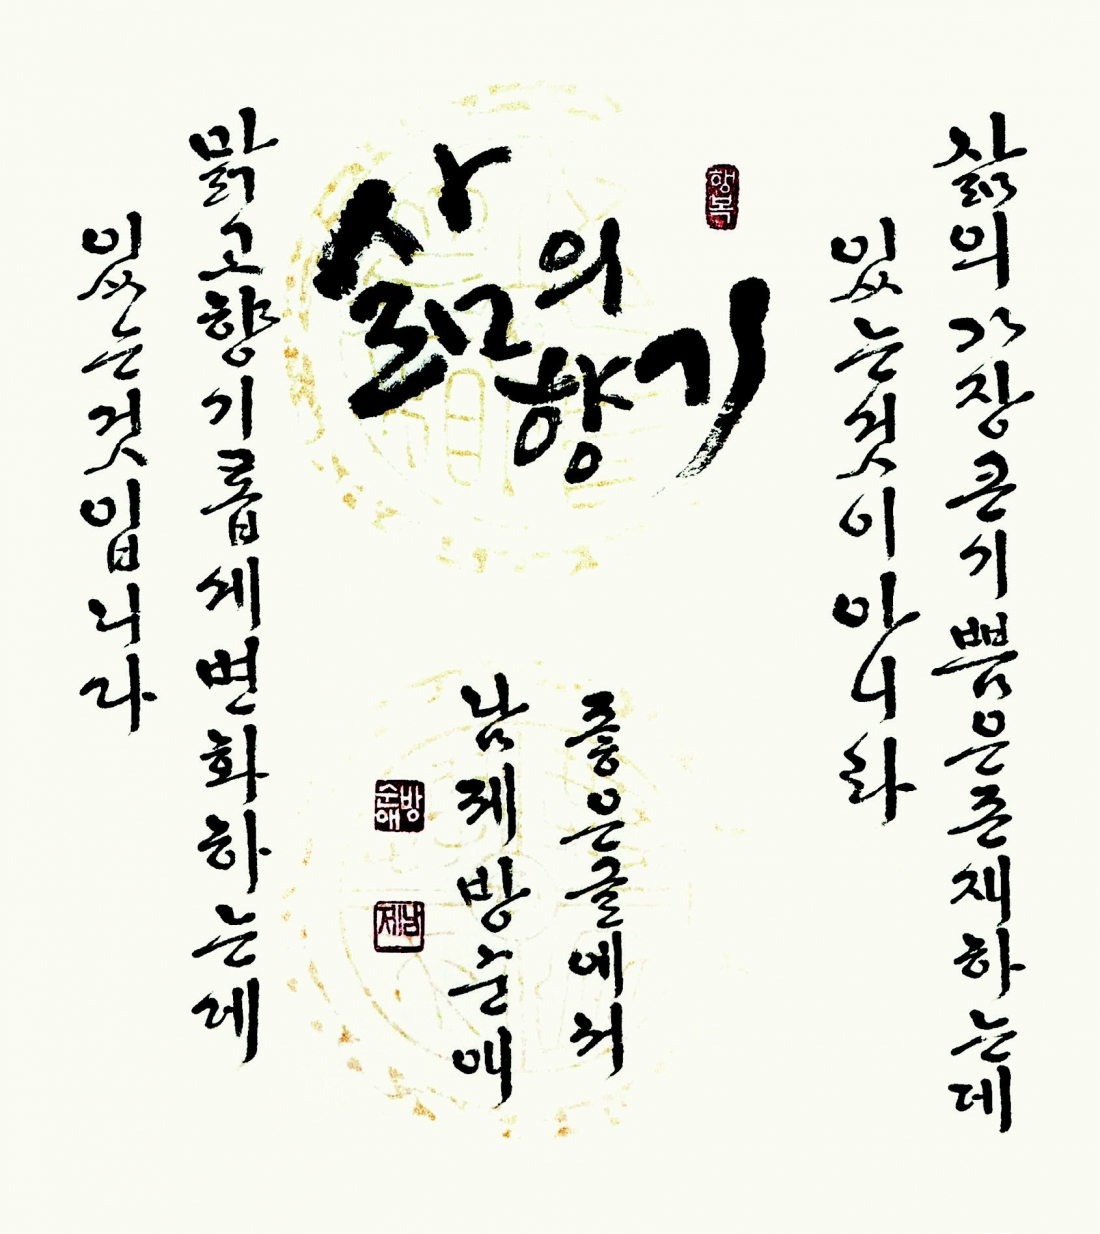 삶의가장큰기쁨은존재하는데
있는것이아니라
행복
삶의
향기
맑고향기롭게변화하는데
있는것입니다
좋은글에서
남제방순애
방순애
남제